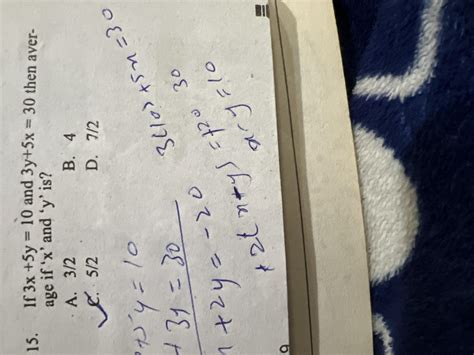 15. If 3x +5y = 10 and 3y+5x = 30 then aver-
age if 'x' and 'y' is?
A. 3/2 B. 4
C. 5/2 D. 7/2
y = 10
+ 3y = 30
+ 2y = -20
+2(x+y) = +20
x-y = 10
3(10) +5x = 30
30
9